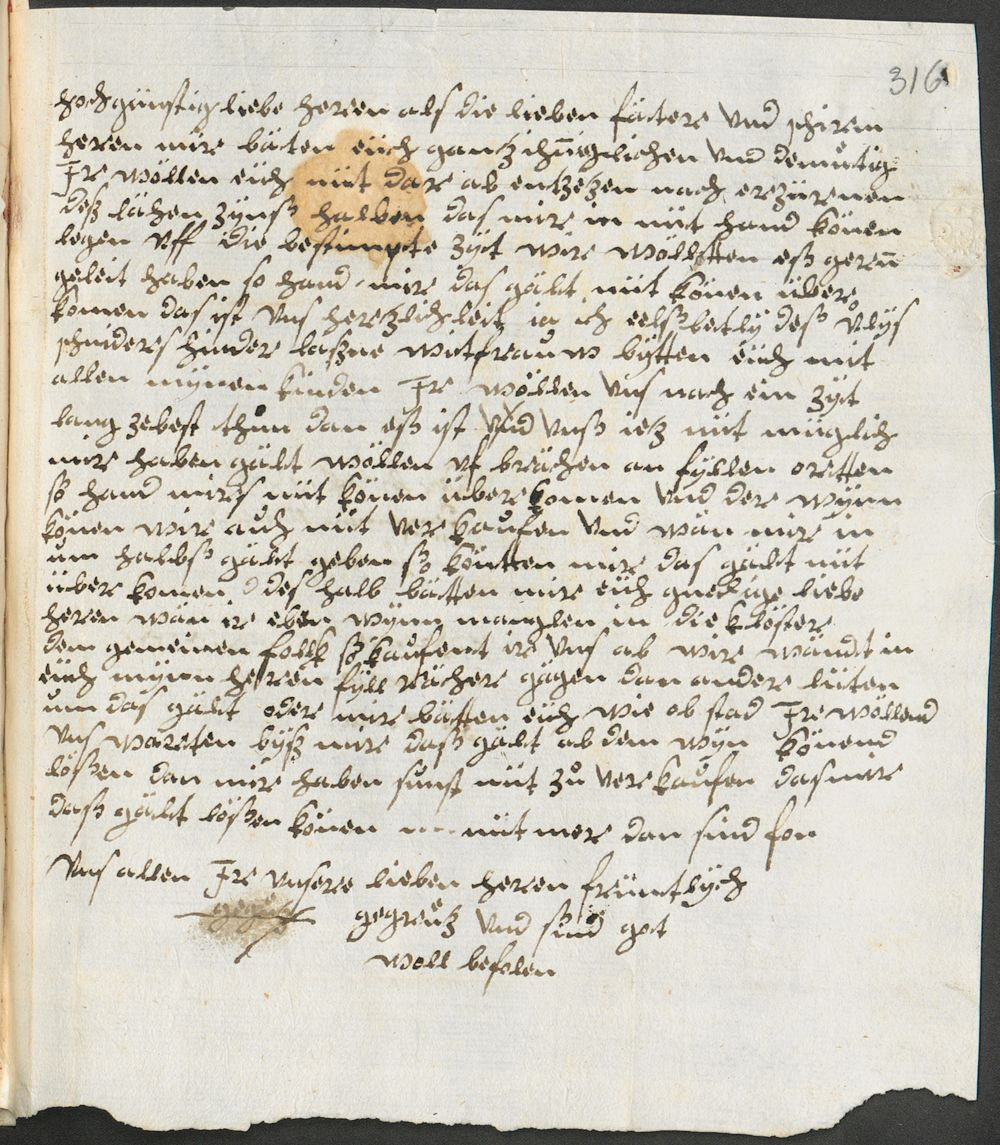 316
hochgünstig liebe heren als die lieben fätere und schirm
heren mir bäten eüch gantz ihniglichen und demuͤtig
Ir wöllen eüch nüt dar ab entzetzen nach erzürenen
deß lähen zÿnß halben das mir in nüt hand könen
legen uff die bestimpte zÿt wir wöllten eß geren
geleit haben so hand mir das gält nüt könen über
komen das ist uns hertzlich leit ia ich elsbetly deß ulÿs
schniders hinder laßne witfrauw bÿtten eüch mit
allen mÿnen kinden Ir wöllen uns nach ein zÿt
lang zebest thun dan eß ist und unß ietz nüt müglich
mir haben gält wöllen uf brächen an fÿllen oretten
so hand mirs nüt könen überkomen und der wÿnn
könen wir auch nüt verkaufen und wän mir in
um halbß gält geben so köntten mir das gält nüt
über komen des halb bätten mir eüch gnedige liebe
heren wän ir eben wÿnn manglen in die klöster
dem gemeinen follk so kaufent ir uns ab wir wändt in
eüch mÿnn heren fÿll rächer gägen dan ander lüten
um das gält oder mir bätten eüch wie ob stad Ir wöllend
uns warten bÿß mir daß gält ab dem wÿn könend
lößen dan mir haben sunst nüt zuͦ verkaufen das mir
daß gält lößen könen nüt mer dan sind fon
uns allen Ir unsere lieben heren früntlÿch
gegreütz und sind got
woll befolen